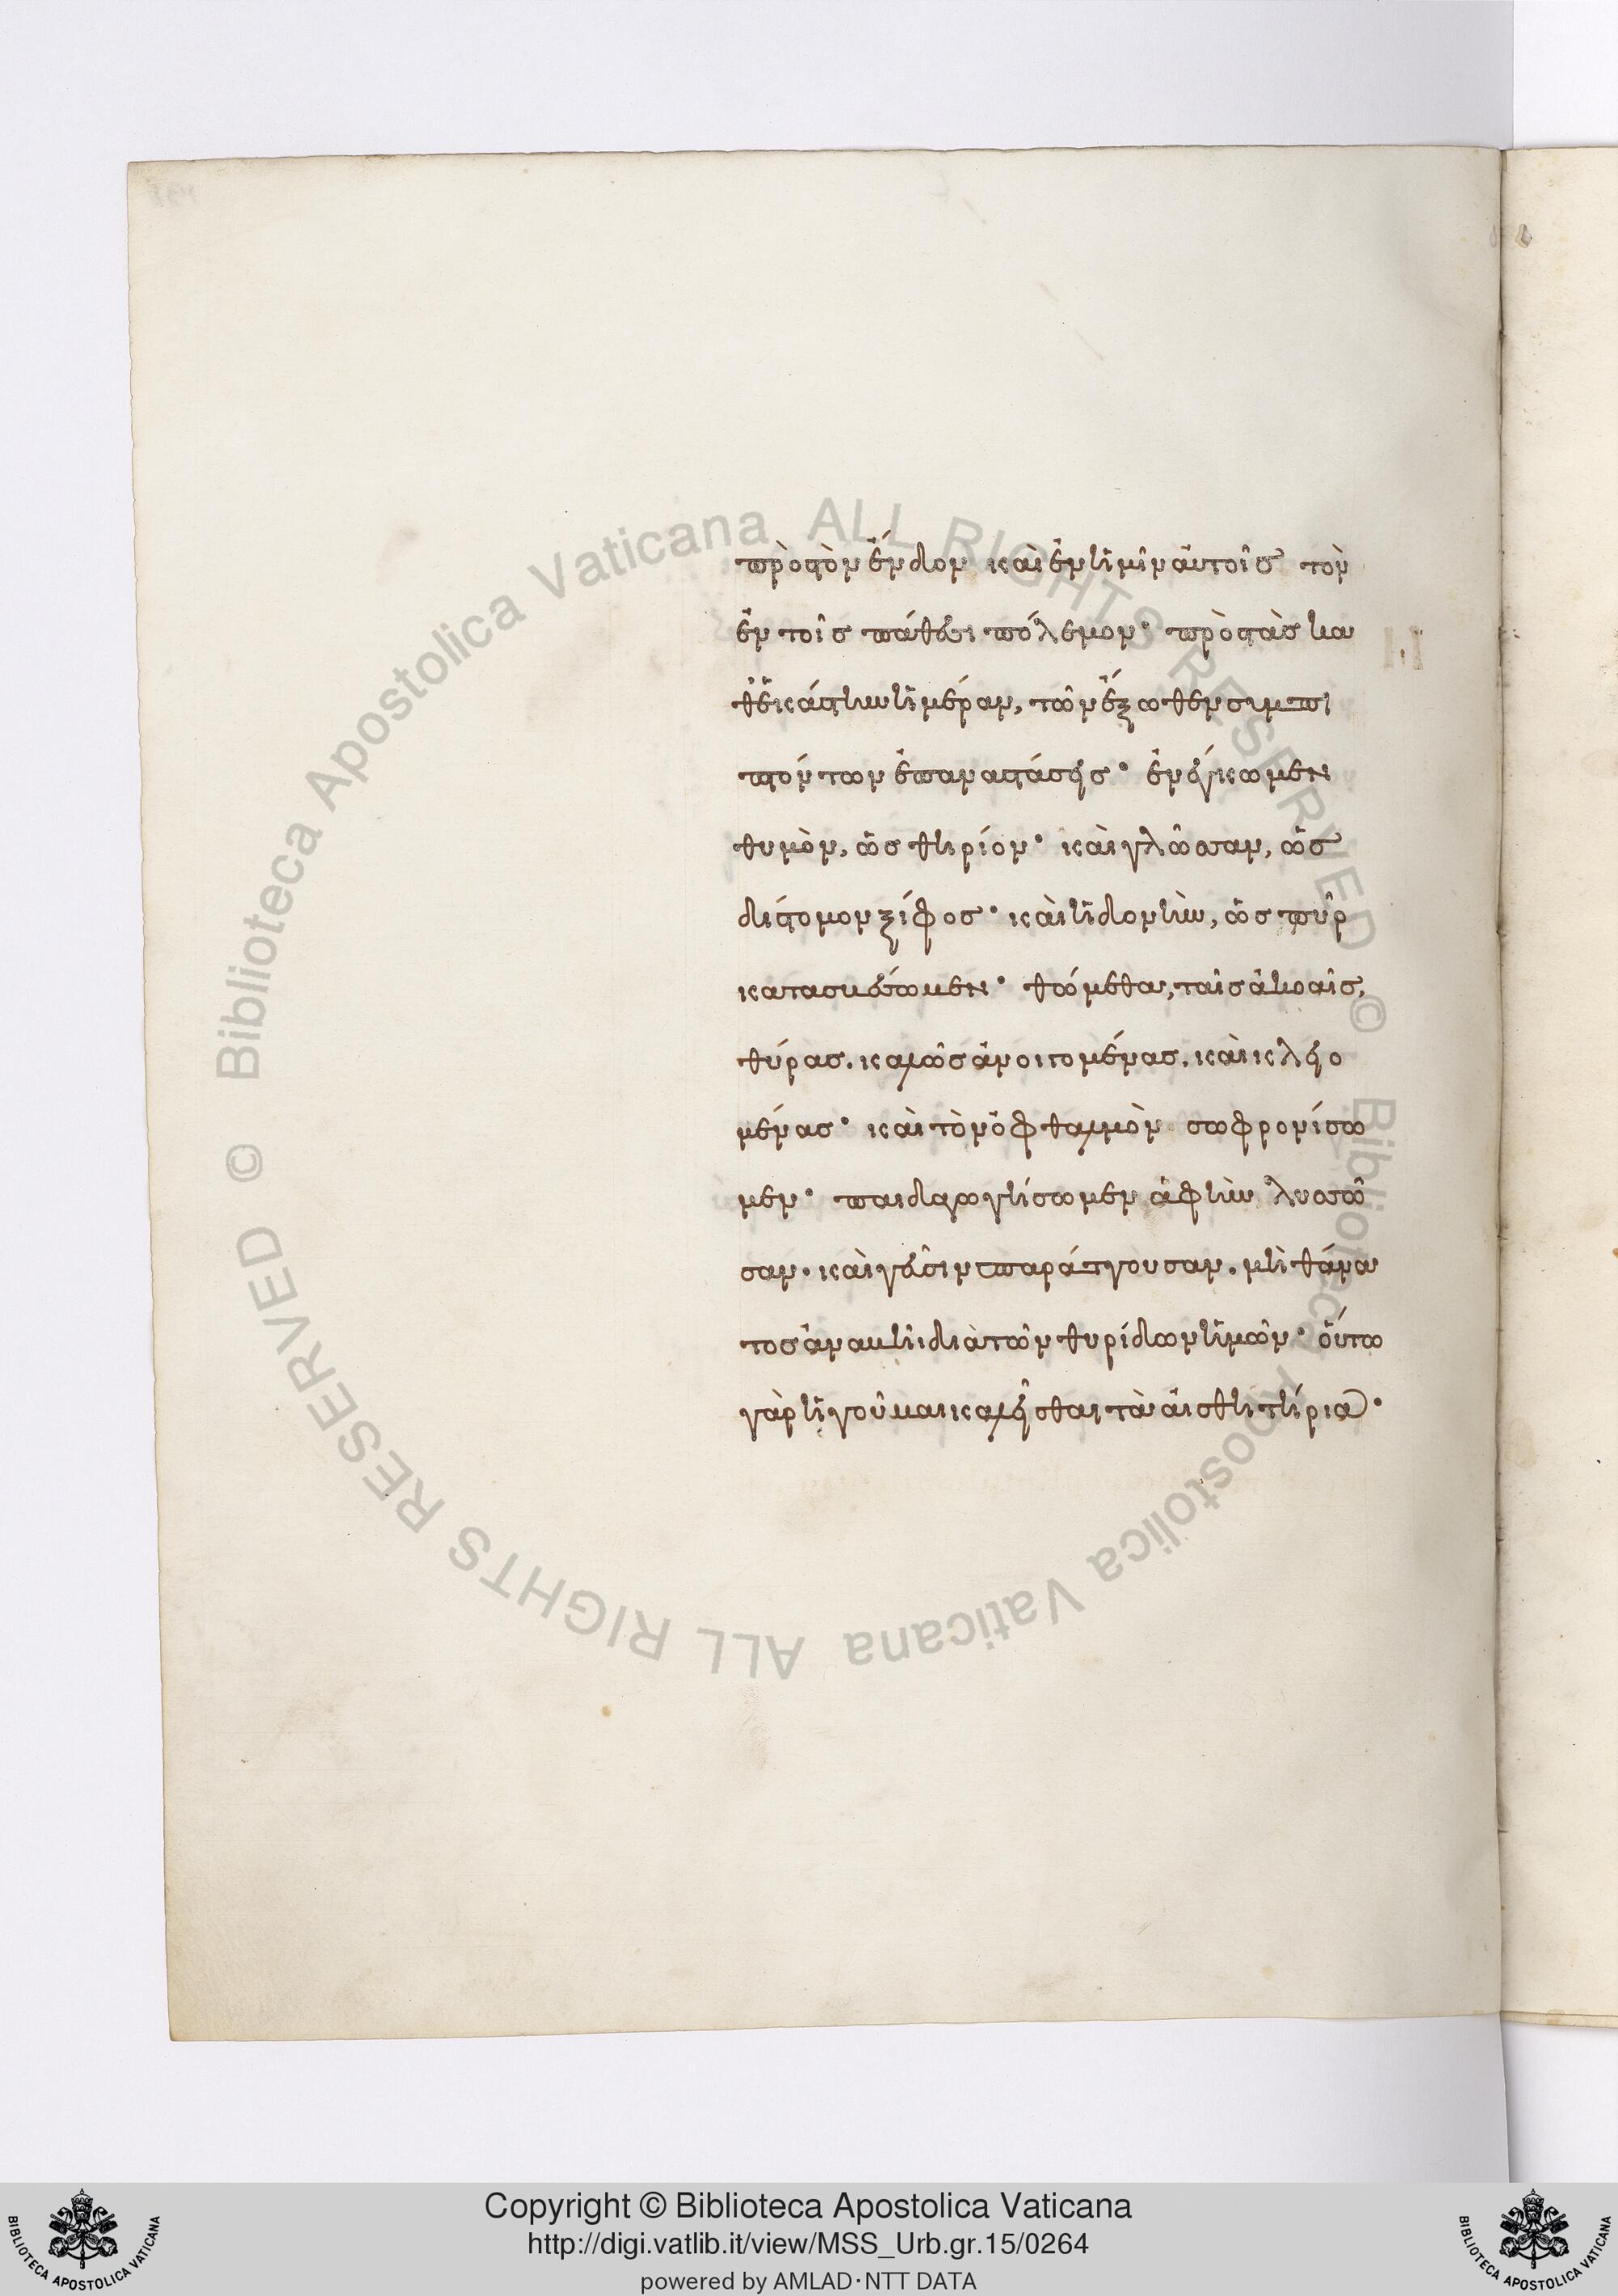 πρὸς τὸν ἔνδον καὶ ἐν ἡμῖν αὐτοῖς τὸν
ἐν τοῖς πάθεσι πόλεμον· πρὸς τὰς κα
θ' ἑκάστην ἡμέραν, τῶν ἔξωθεν συμπι
πτόντων ἐπαναστάσεις· ἐνέγκωμεν
θυμὸν, ὡς θηρίον· καὶ γλῶσσαν, ὡς
δίστομον ξίφος· καὶ ἡδονὴν, ὡς πῦρ
κατασβέσωμεν· θώμεθα, ταῖς ἀκοαῖς,
θύρας. καλῶς ἀνοιγομένας. καὶ κλειο
μένας· καὶ τὸν ὀφθαλμὸν σωφρονίσω
μεν· παιδαγωγήσωμεν ἁφὴν λυσσῶ
σαν. καὶ γεῦσιν σπαράττουσαν. μὴ θάνα
τος ἀναβῇ διὰ τῶν θυρίδων ἡμῶν· οὕτω
γὰρ ἡγοῦμαι καλεῖσθαι τὰ αἰσθητήρια·
Biblioteca Apostolica Vaticana ALL RIGHTS RESERVED ©
Biblioteca Apostolica Vaticana ALL RIGHTS RESERVED ©
Copyright © Biblioteca Apostolica Vaticana
http://digi.vatlib.it/view/MSS_Urb.gr.15/0264
powered by AMLAD·NTT DATA
BIBLIOTECA APOSTOLICA VATICANA
BIBLIOTECA APOSTOLICA VATICANA